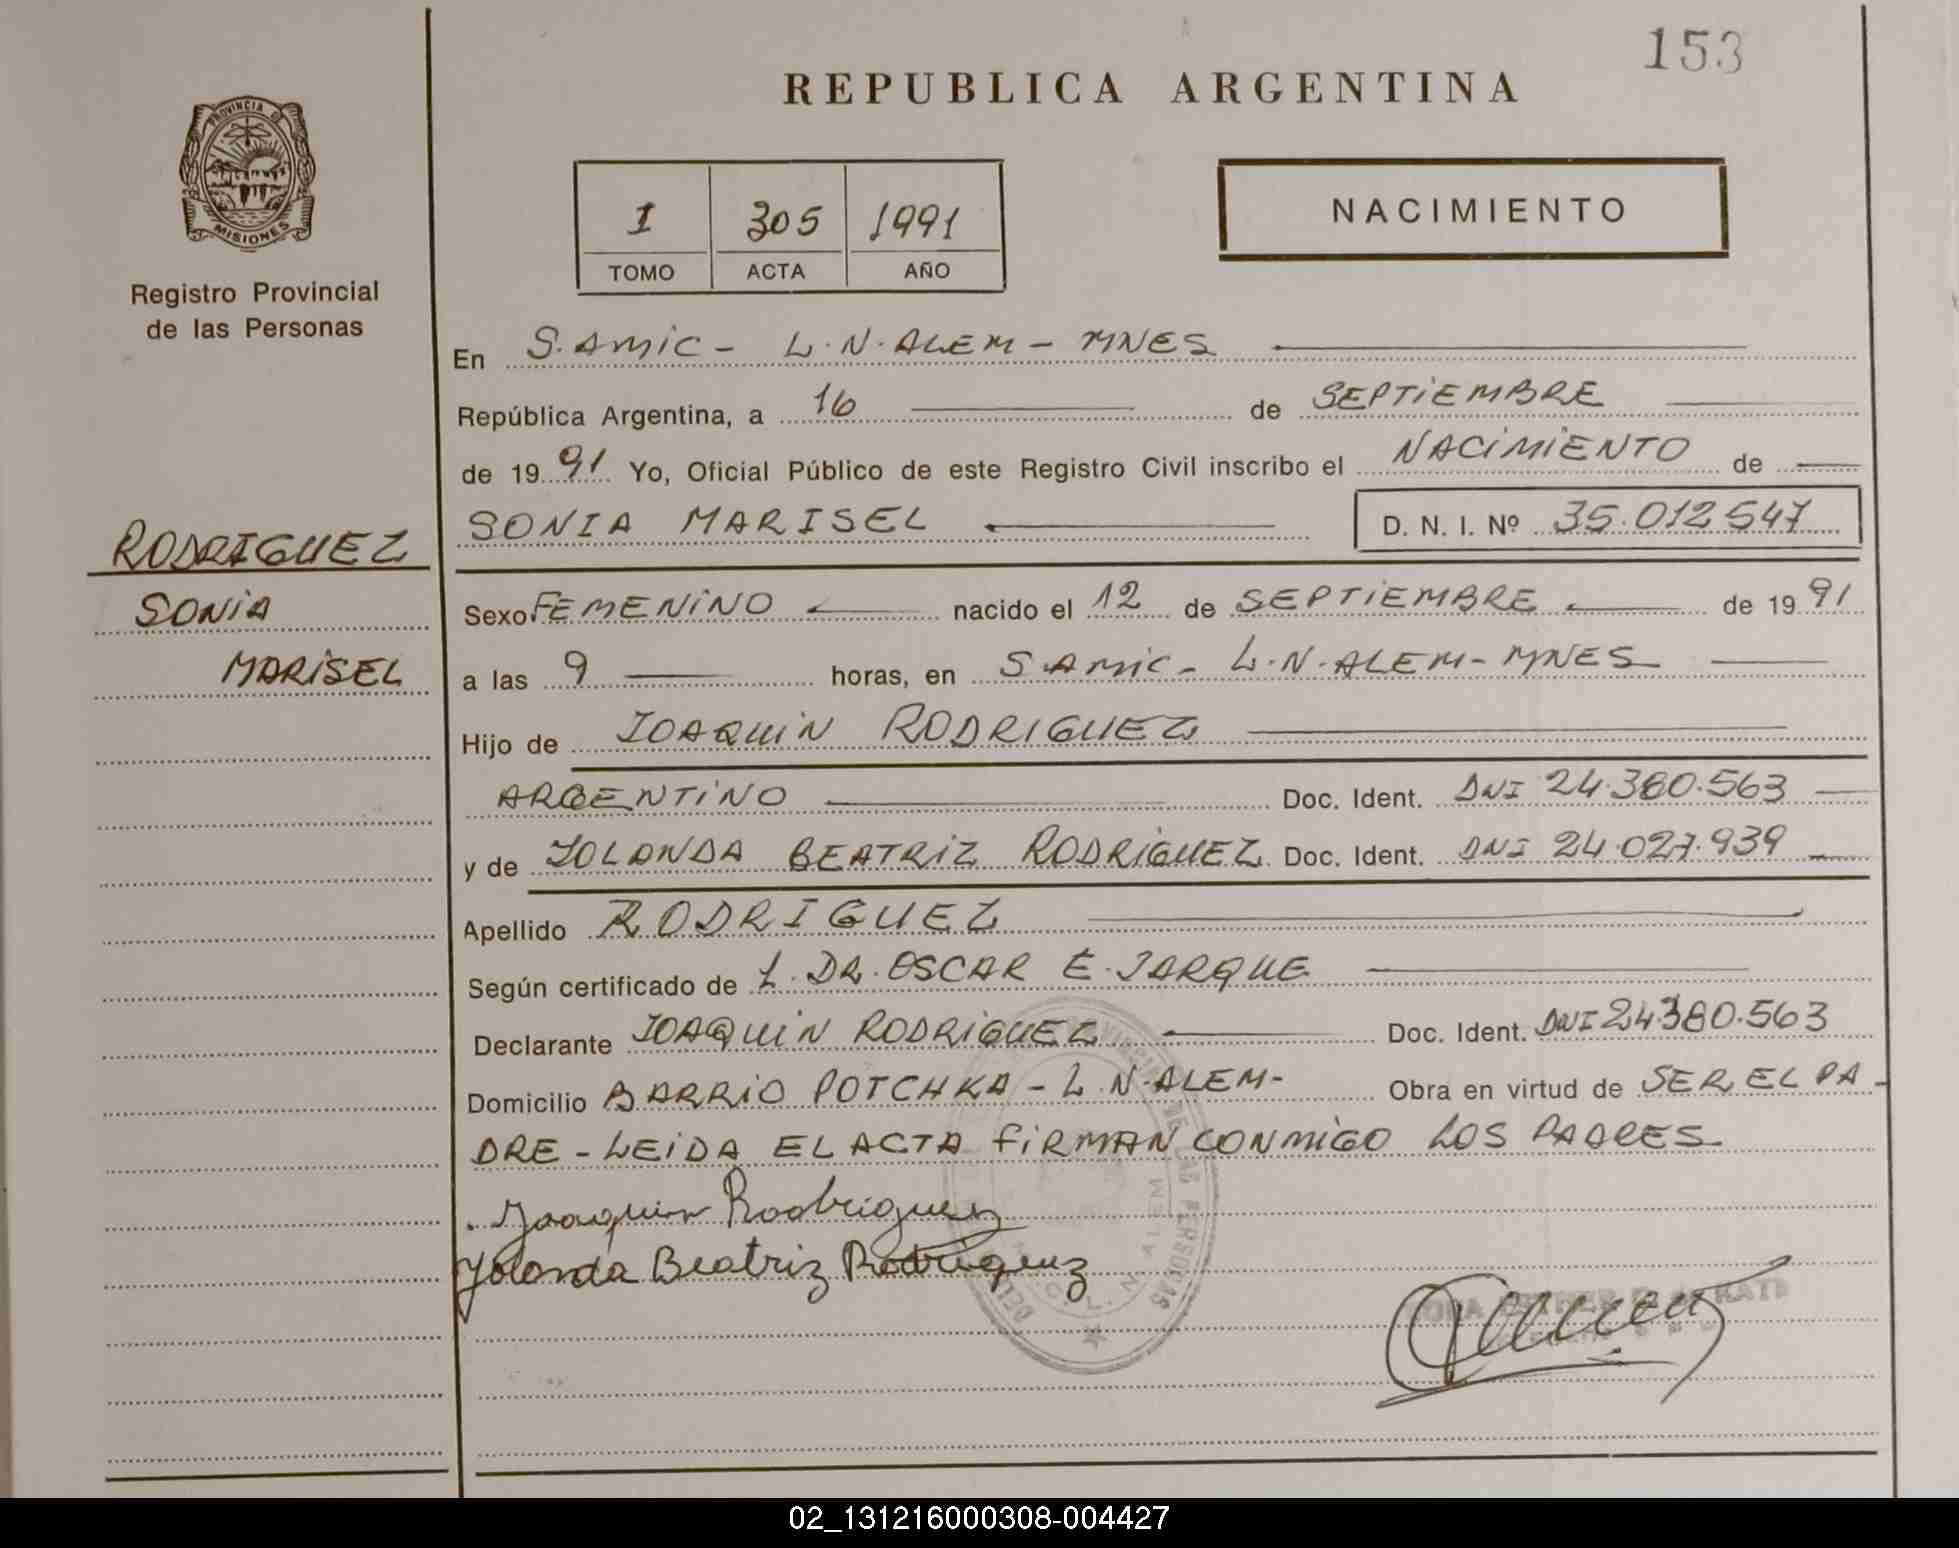 153
REPUBLICA ARGENTINA
PROVINCIA DE
MISIONES
Registro Provincial
de las Personas
I 305 1991
TOMO ACTA AÑO
NACIMIENTO
En S. AMIC - L. N. ALEM - MNES
República Argentina, a 16 de SEPTIEMBRE
de 1991 Yo, Oficial Público de este Registro Civil inscribo el NACIMIENTO de
SONIA MARISEL D. N. I. Nº 35.012547
RODRIGUEZ
SONIA
MARISEL
Sexo FEMENINO nacido el 12 de SEPTIEMBRE de 1991
a las 9 horas, en S. AMIC - L. N. ALEM - MNES
Hijo de JOAQUIN RODRIGUEZ
ARGENTINO Doc. Ident. DNI 24.380.563
y de YOLANDA BEATRIZ RODRIGUEZ Doc. Ident. DNI 24.027.939
Apellido RODRIGUEZ
Según certificado de L. DR. OSCAR E. JARQUE
Declarante JOAQUIN RODRIGUEZ Doc. Ident. DNI 24.380.563
Domicilio BARRIO POTCHKA - L. N. ALEM - Obra en virtud de SER EL PA-
DRE - LEIDA EL ACTA FIRMAN CONMIGO LOS PADRES
Joaquin Rodriguez
Yolonda Beatriz Rodriguez
DE LAS PERSONAS
L. N. ALEM
02_131216000308-004427